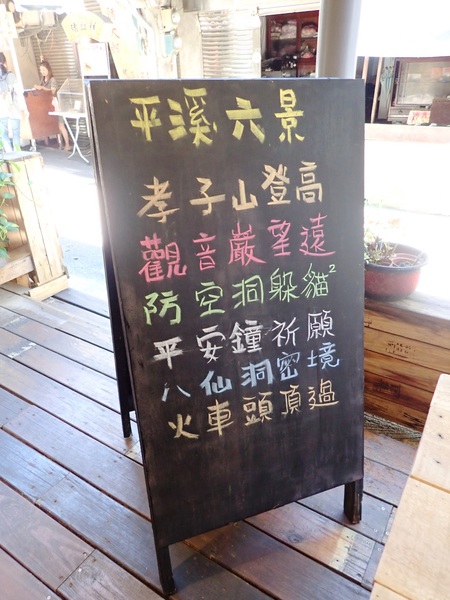 平溪六景
孝子山登高
觀音巖望遠
防空洞躲貓²
平安鐘祈願
八仙洞密境
火車頭頂過